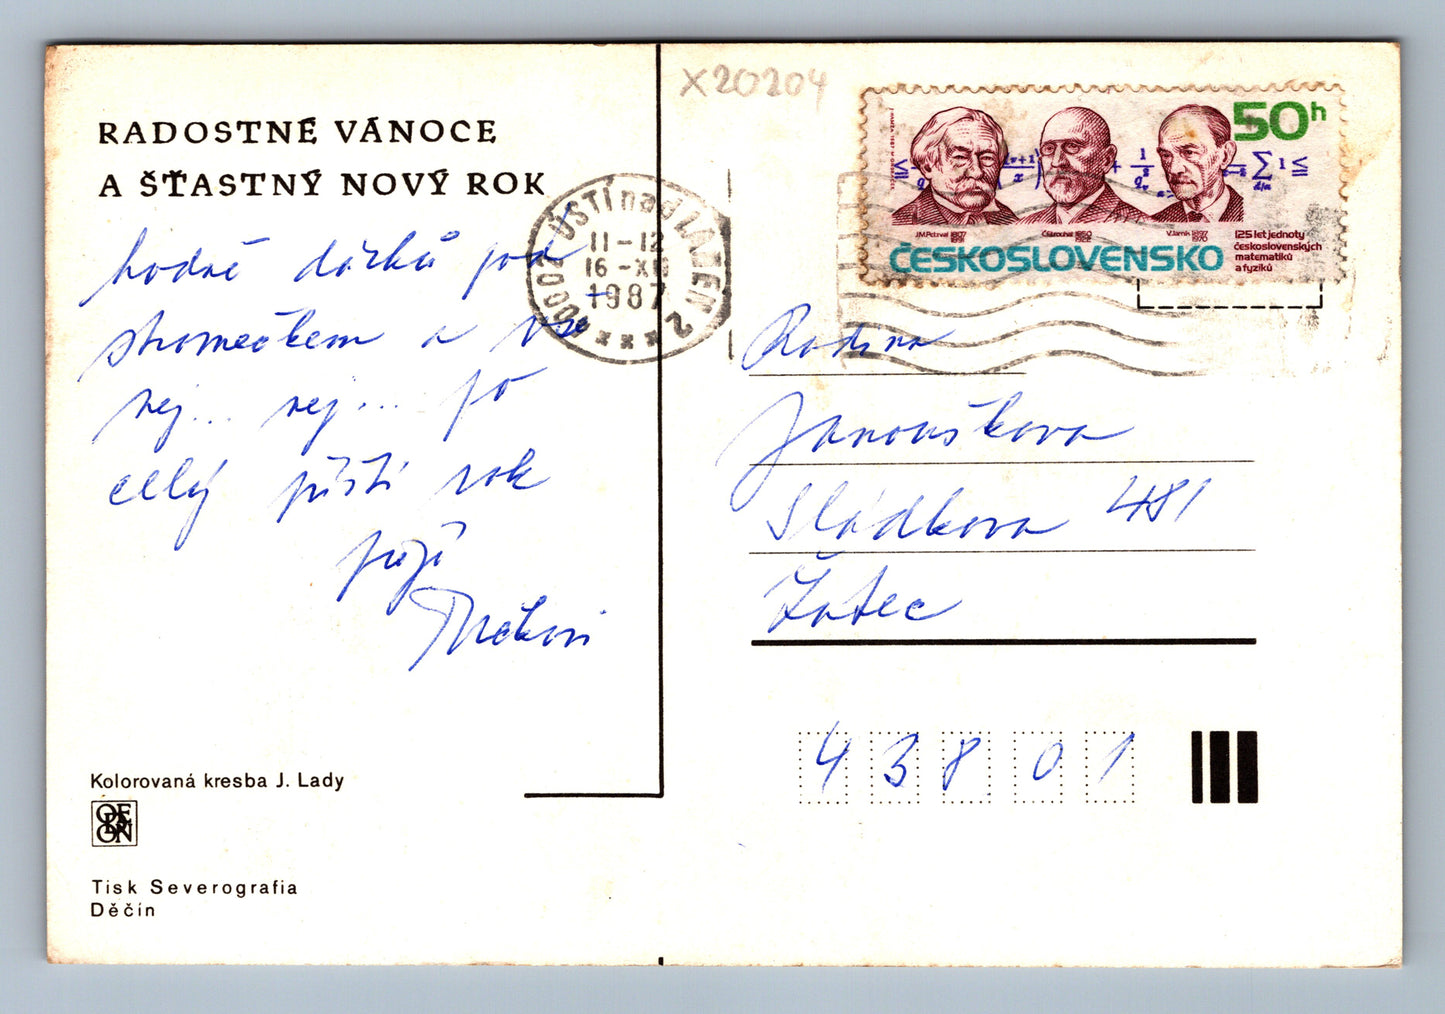 RADOSTNÉ VÁNOCE
A ŠŤASTNÝ NOVÝ ROK
hodně dárků pod
stromečkem a vše
nej... nej... po
celý příští rok
přejí
Kolorovaná kresba J. Lady
ODEON
Tisk Severografia
Děčín
X20204
50h
J.M.Petzval 1807 1891
Č.Strouhal 1850 1922
V.Jarník 1897 1970
125 let jednoty
československých
matematiků
a fyziků
ČESKOSLOVENSKO
40002 ÚSTÍ nad LABEM 2
11-12
16-XII
1987
Rodina
Janouškova
Sládkova 481
Žatec
43801